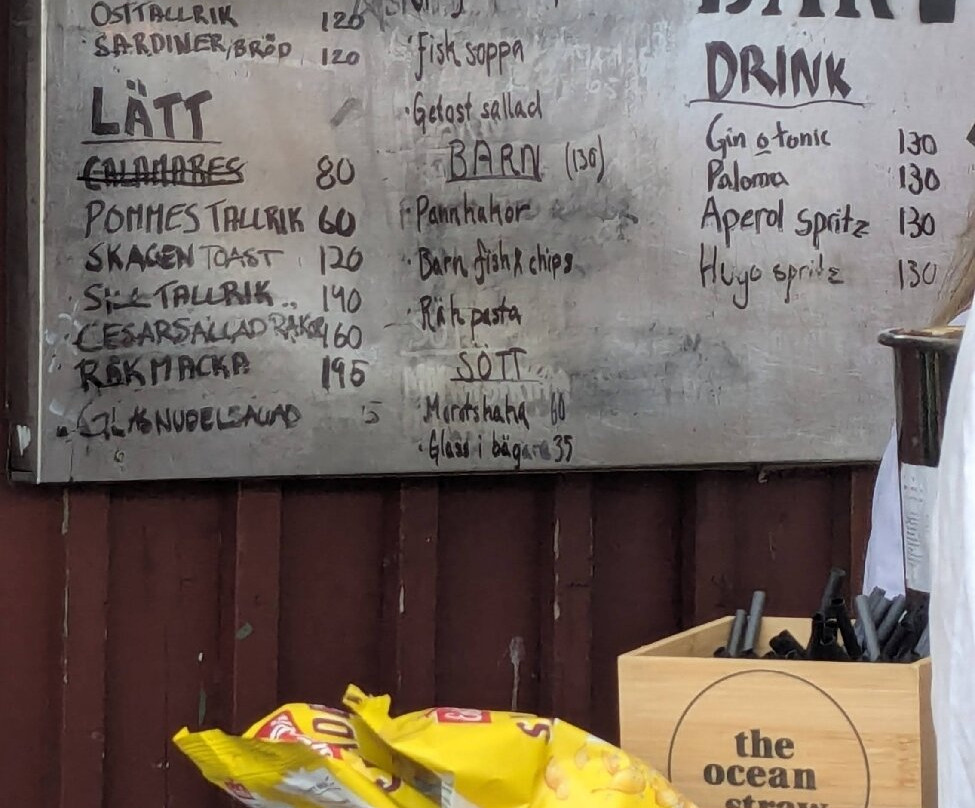 OSTTALLRIK 120
SARDINER/BRÖD 120
LÄTT
CALAMARES 80
POMMES TALLRIK 60
SKAGEN TOAST 120
SILLTALLRIK 140
CESARSALLAD RÄKOR 160
RÄKMACKA 195
GLASNUDELSALLAD
· Fisk soppa
· Getost sallad
BARN (130)
· Pannkakor
· Barn fish & chips
· Räk pasta
SÖTT
· Morotskaka 60
· Glass i bägare 35
BAR
DRINK
Gin o tonic 130
Paloma 130
Aperol spritz 130
Hugo spritz 130
the
ocean
straw